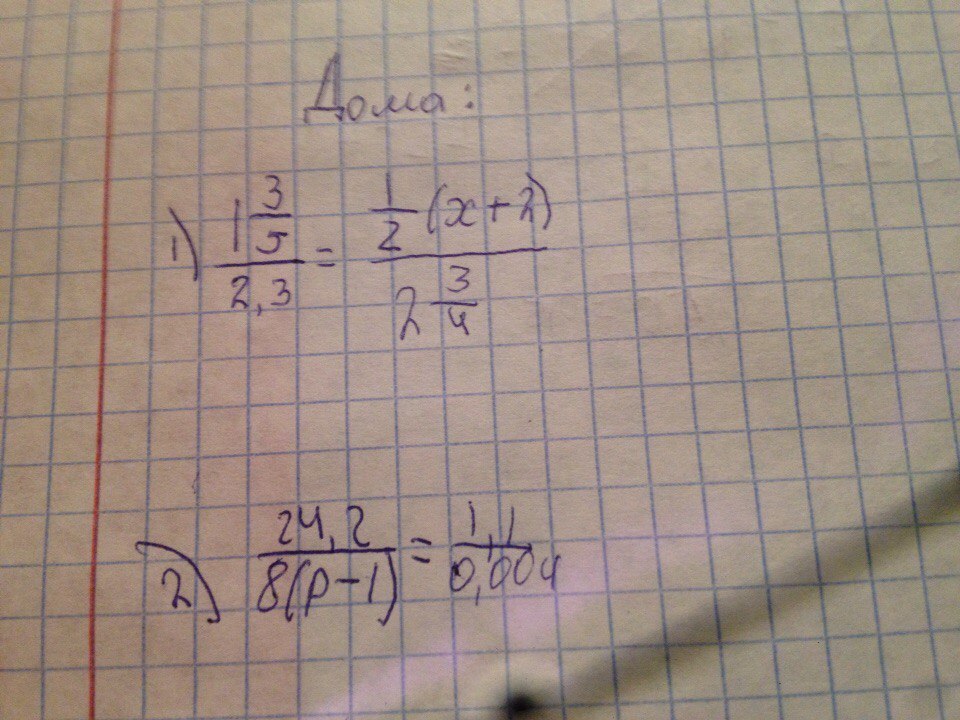 Дома:
1) 1 3/5 / 2,3 = 1/2 (x+2) / 2 3/4
2) 24,2 / 8(p-1) = 1,1 / 0,004